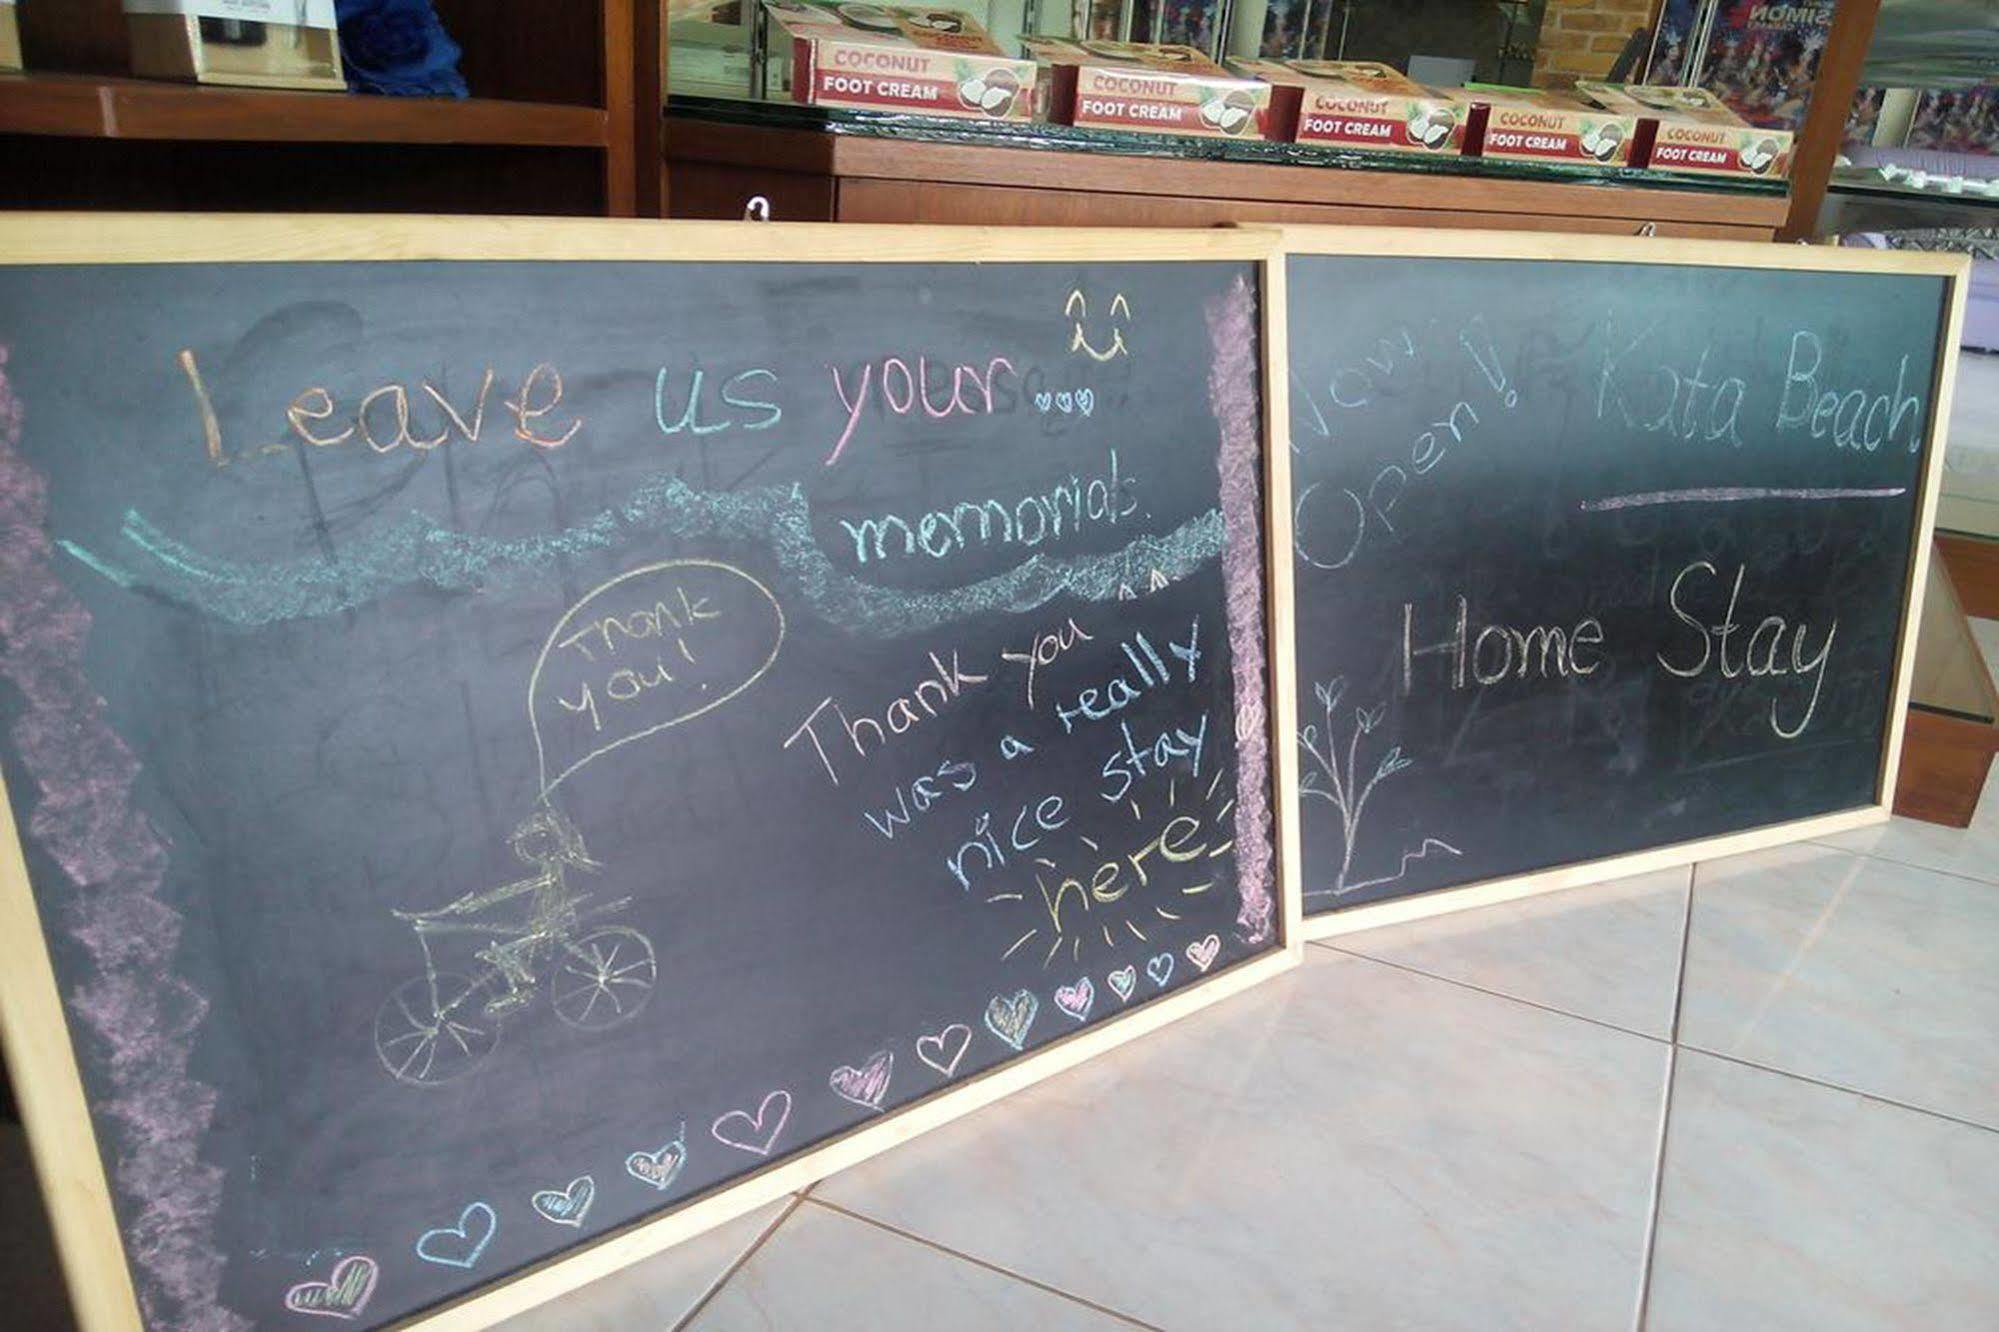 COCONUT
FOOT CREAM
COCONUT
FOOT CREAM
COCONUT
FOOT CREAM
COCONUT
FOOT CREAM
COCONUT
FOOT CREAM
SIMON
Leave us your
memorials.
Thank
you!
Thank you
was a really
nice stay
here
Now
Open!
Kata Beach
Home Stay